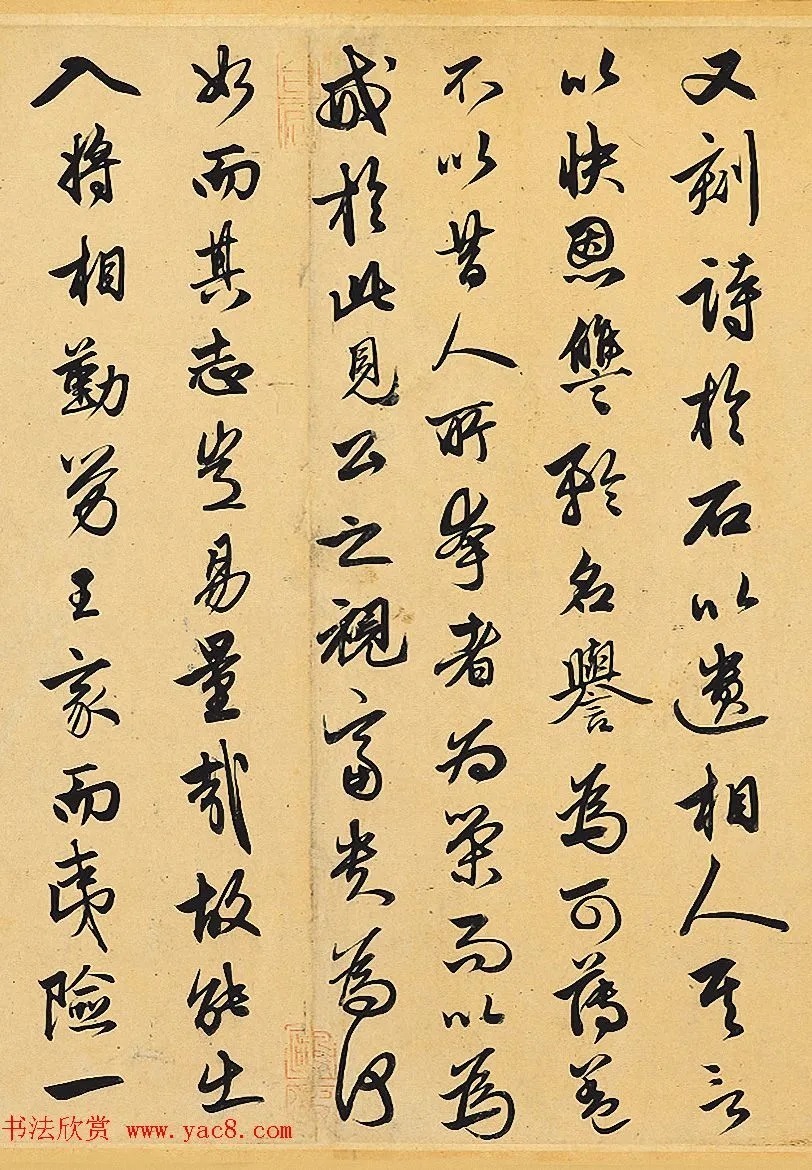 又刻詩於石以遺相人其言
以快恩讎矜名譽為可薄蓋
不以昔人所夸者為榮而以為
戒於此見公之視富貴為何
如而其志豈易量哉故能出
入將相勤勞王家而夷險一
书法欣赏 www.yac8.com